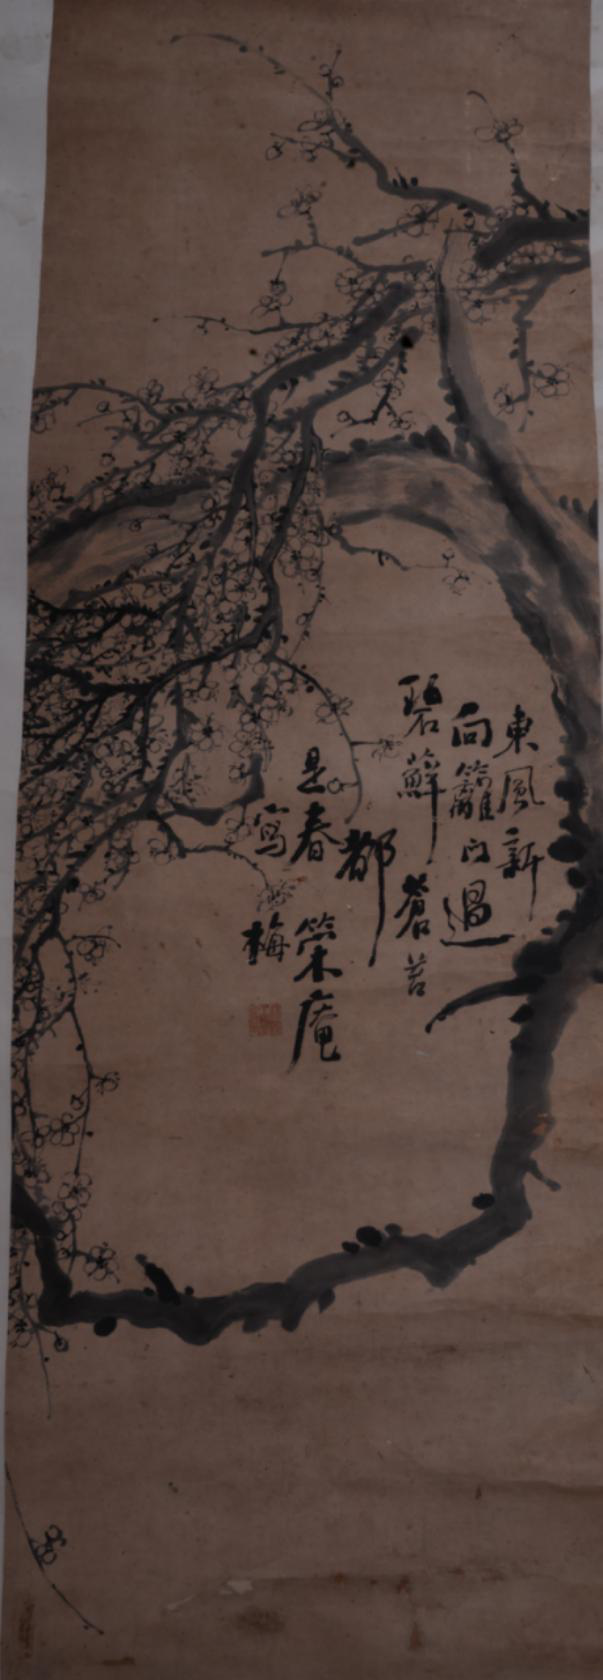 東風新
向籬内過
碧蘚蒼苔
都
是春榮庵
寫梅